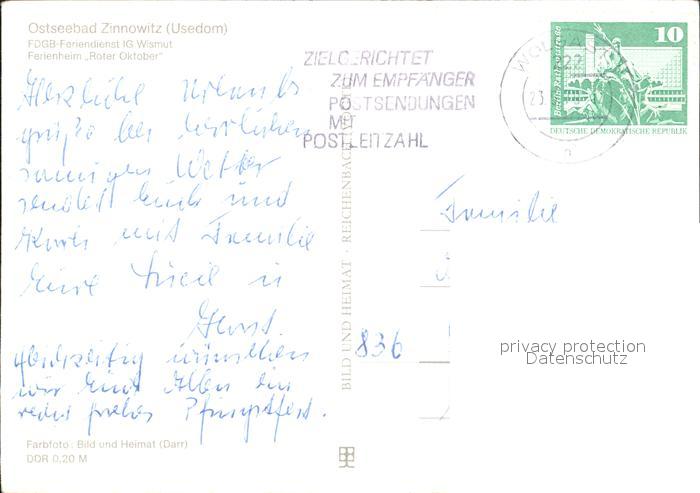 Ostseebad Zinnowitz (Usedom)
FDGB-Feriendienst IG Wismut
Ferienheim „Roter Oktober"
Herzliche Urlaubs
grüße bei herrlichem
sonnigen Wetter
sendet Euch und
mit Familie
Eure u
Horst.
Gleichzeitig wünschen
wir Euch Allen ein
recht frohes Pfingstfest.
Farbfoto: Bild und Heimat (Darr)
DDR 0,20 M
BILD UND HEIMAT · REICHENBACH
ZIELGERICHTET
ZUM EMPFÄNGER
POSTSENDUNGEN
MIT
POSTLEITZAHL
WOLGAST
22
23.
10
DEUTSCHE DEMOKRATISCHE REPUBLIK
Familie
836
privacy protection
Datenschutz